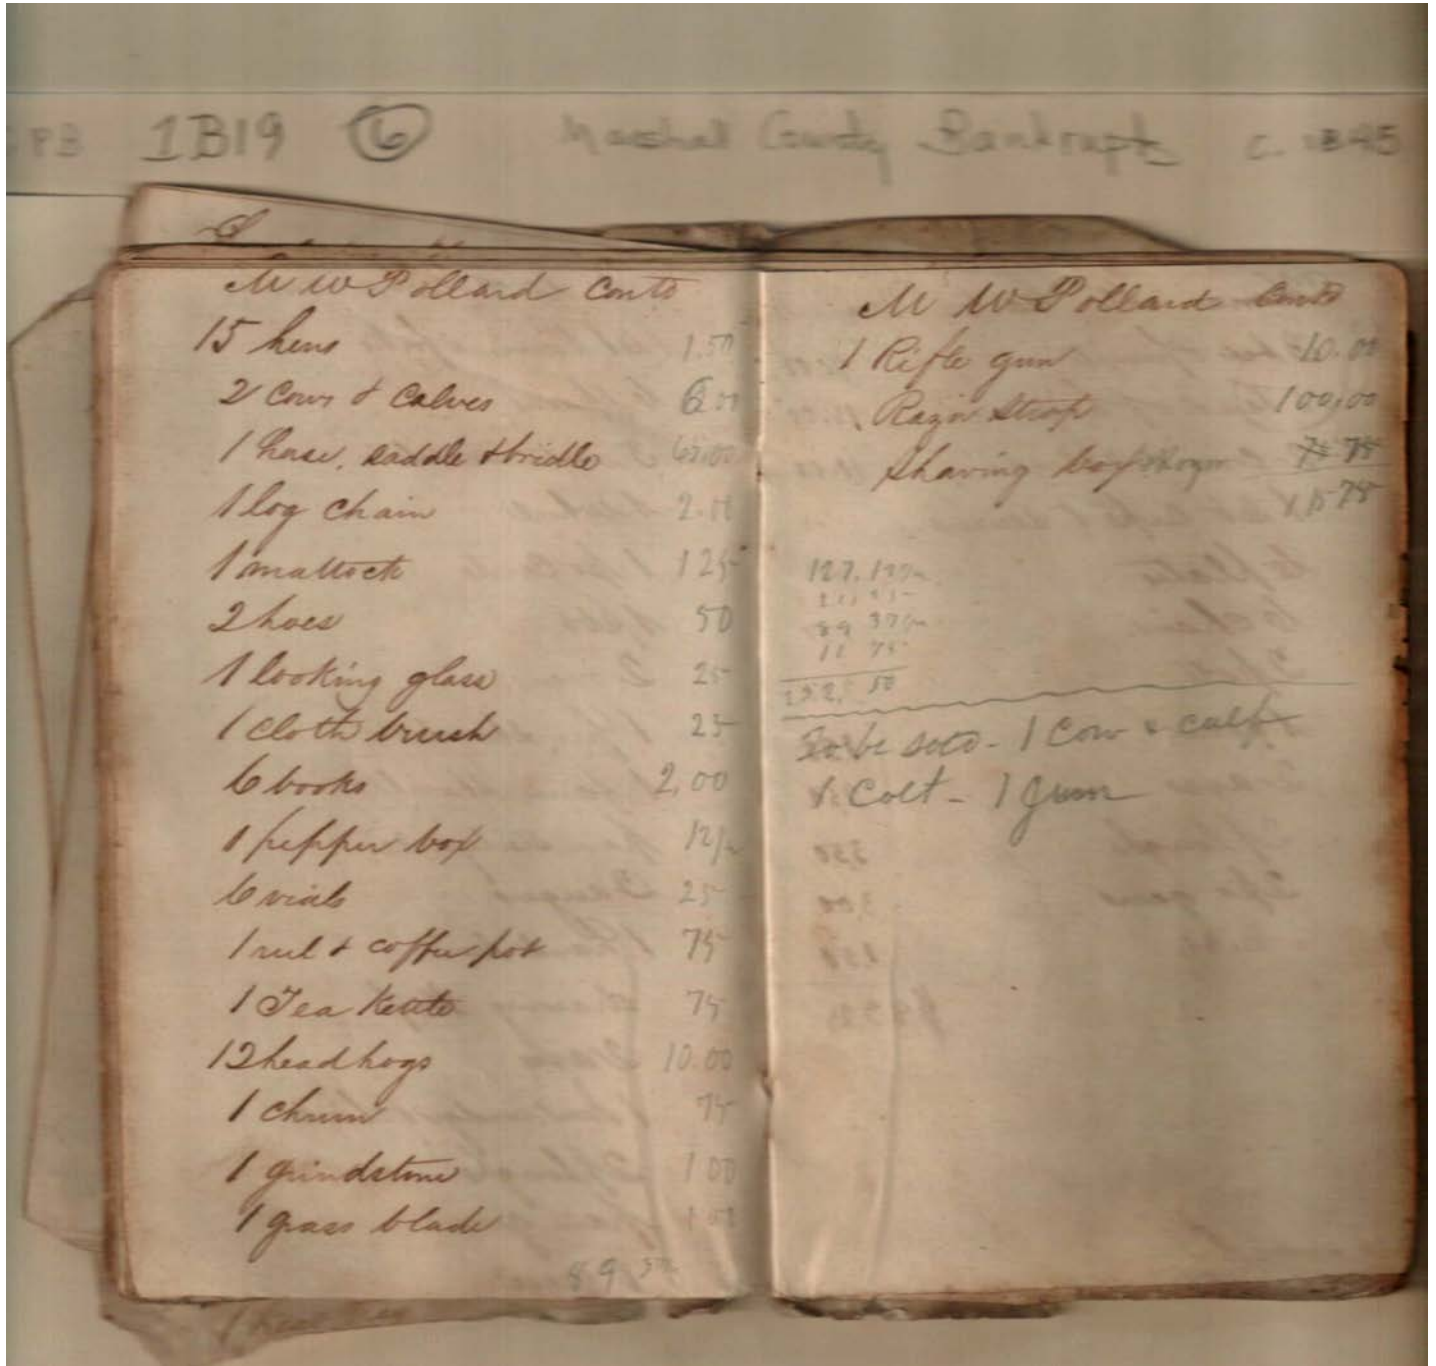 1B19 6 Marshal County Bankrupts c. 1845
M W Pollard Contd
15 hens 1.50
2 Cows & Calves 6.00
1 horse, saddle & bridle 65.00
1 log chain 2.
1 mattock 1 25
2 hoes 50
1 looking glass 25
1 cloth brush 25
6 books 2,00
1 pepper box 12½
6 vials 25
1 reel & coffee pot 75
1 Tea Kettle 75
12 head hogs 10.00
1 churn 75
1 grindstone 1 00
1 grass blade 1
89
M W Pollard Contd
1 Rifle gun 10.00
Razor Strop 100,00
Shaving box 75
75
127.
89 37½
11 75
50
To be sold - 1 Cow & calf
1 Colt - 1 gun